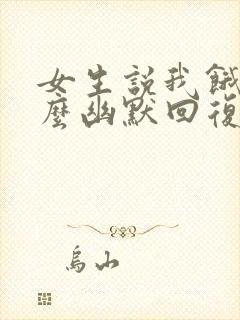 女生説我餓
麼幽默回復
烏山